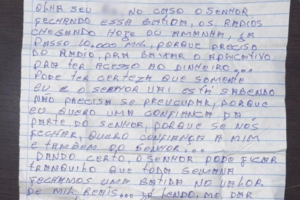 OLHA SEU NO CASO O SENHOR
FECHANDO ESSA BATIDA, OS RADIOS
CHEGANDO HOJE OU AMANHÃ, JÁ
PASSO 10.000 MIL, PORQUE PRECISO
DO RADIO, PRA BAIXAR O APLICATIVO
PRA TER ACESSO AO DINHEIRO...
PODE TER CERTEZA QUE SOMENTE
EU E O SENHOR VAI ESTÁ SABENDO
NÃO PRECISA SE PREUCUPAR, PORQUE
EU QUERO UMA CONFIANÇA DA
PARTE DO SENHOR, PORQUE SE NÓS
FECHAR, QUERO CONFIANÇA A MIM
E TAMBEM AO SENHOR...
DANDO CERTO, O SENHOR PODE FICAR
TRANQUILO QUE TODA SEMANA
FECHAMOS UMA BATIDA NO VALOR
DE MIL REAIS... SÓ ME DAR